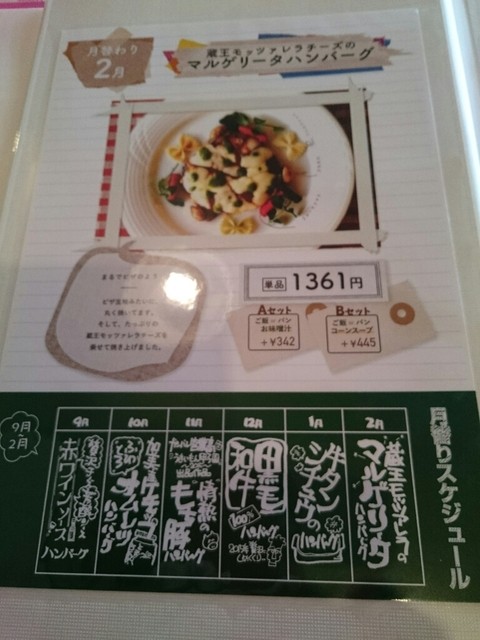 月替わり
2月
蔵王モッツァレラチーズの
マルゲリータハンバーグ
まるでピザのよう
ピザ生地みたいに
丸く焼いてます。
そして、たっぷりの
蔵王モッツァレラチーズを
乗せて焼き上げました。
単品 1361円
Aセット
ご飯 or パン
お味噌汁
+¥342
Bセット
ご飯 or パン
コーンスープ
+¥445
月替りスケジュール
9月
2月
9月
赤ワインソース
ハンバーグ
10月
オムレツ
ハンバーグ
11月
情熱の
もち豚
ハンバーグ
12月
黒毛
和牛
100%
ハンバーグ
1月
牛タン
シチューの
ハンバーグ
2月
蔵王モッツァレラの
マルゲリータ
ハンバーグ